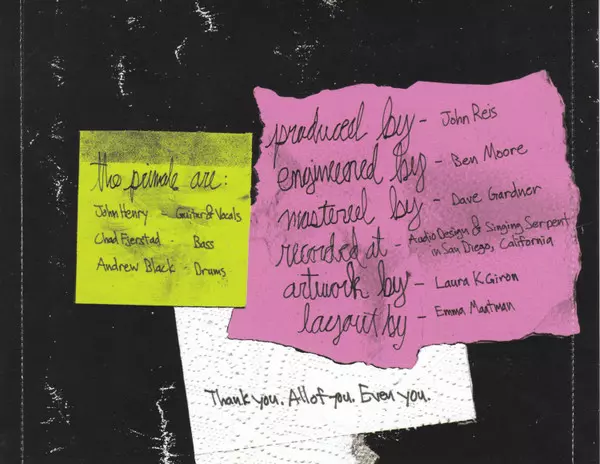 the primals are:
John Henry - Guitar & Vocals
Chad Fjerstad - Bass
Andrew Black - Drums
produced by - John Reis
engineered by - Ben Moore
mastered by - Dave Gardner
recorded at - Audio Design & Singing Serpent
in San Diego, California
artwork by - Laura K Giron
layout by - Emma Maatman
Thank you. All of you. Even you.